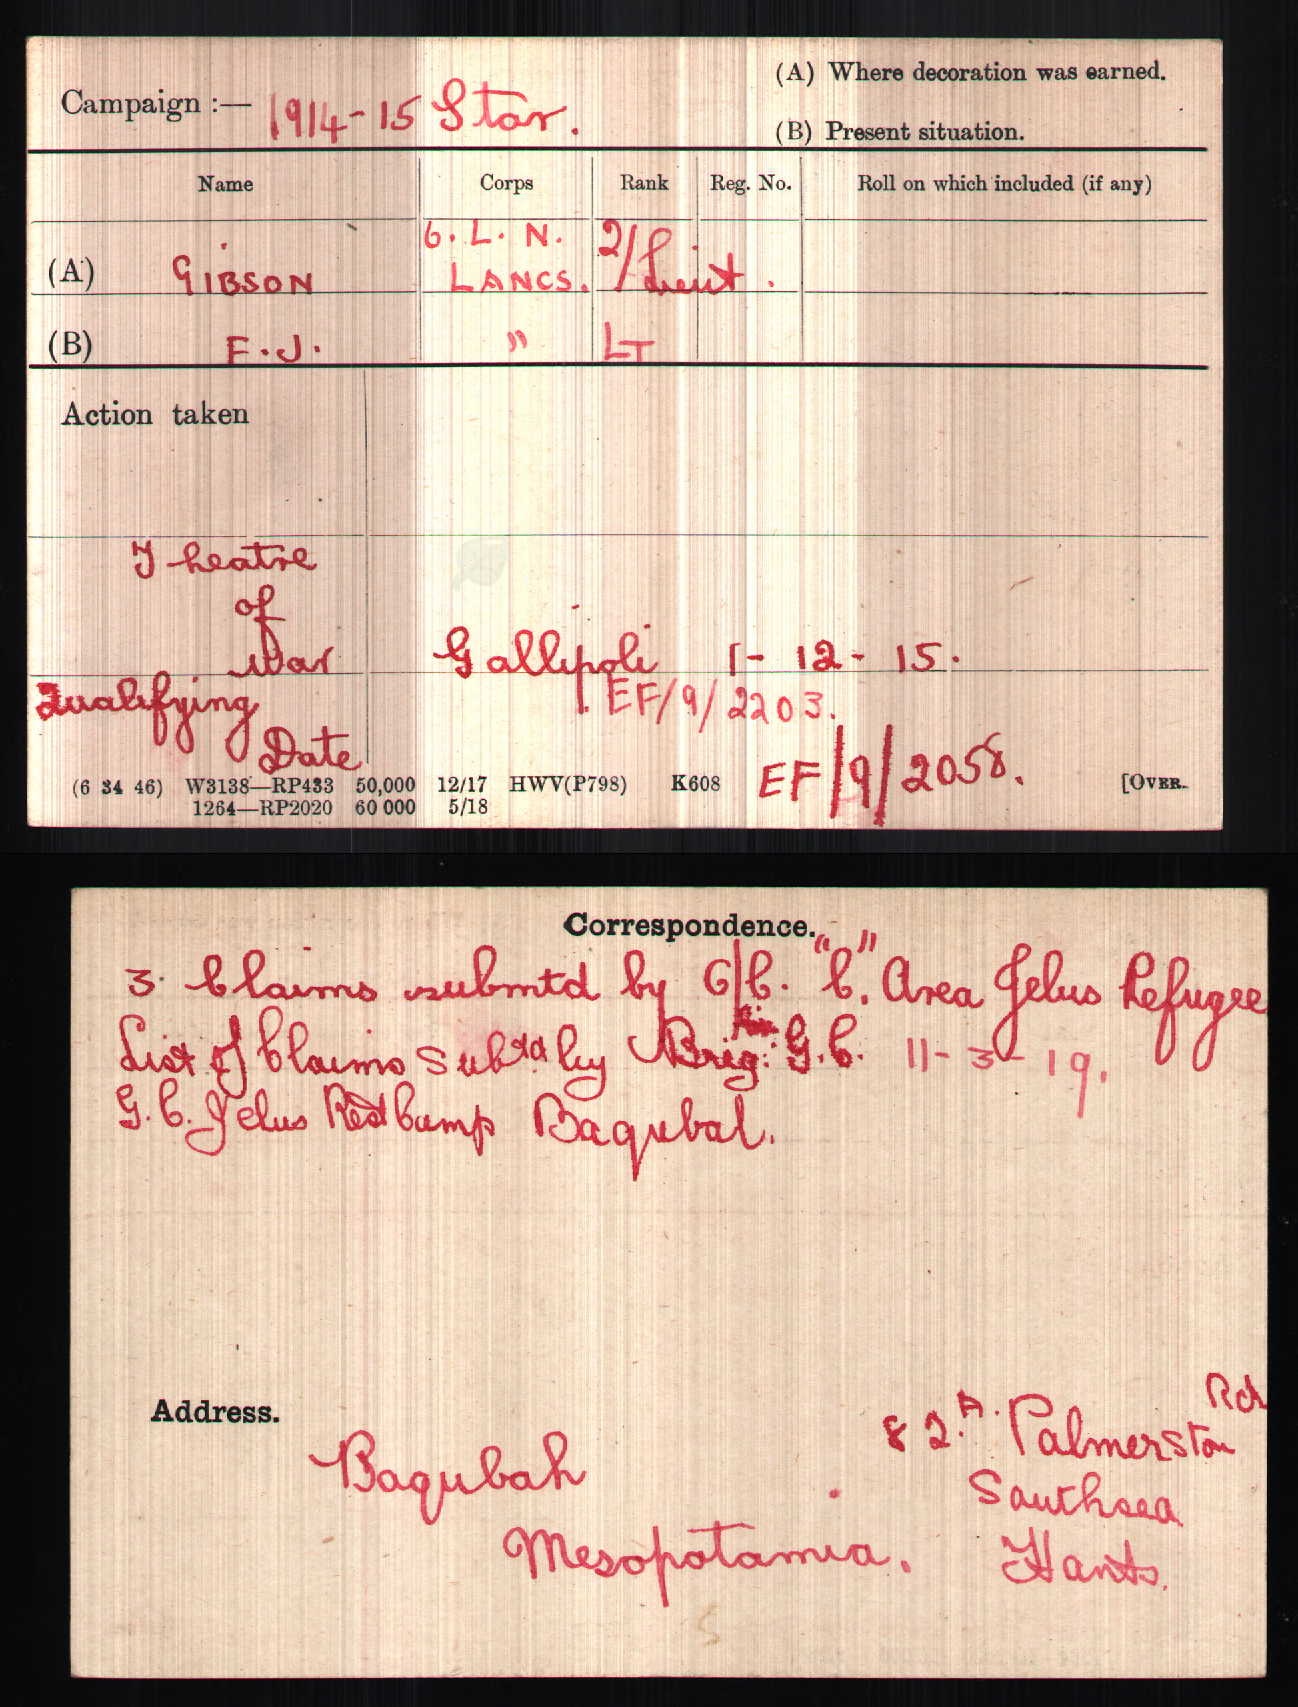 Campaign :— 1914-15 Star.
(A) Where decoration was earned.
(B) Present situation.
Name Corps Rank Reg. No. Roll on which included (if any)
(A) GIBSON 6. L. N. LANCS. 2/Lieut.
(B) F.J. " LT
Action taken
Theatre
of
War Gallipoli 1-12-15.
Qualifying EF/9/2203.
Date
EF/9/2058.
(6 34 46) W3138—RP433 50,000 12/17 HWV(P798) K608 [OVER.
1264—RP2020 60 000 5/18
Correspondence.
3 Claims submtd by G/C. "C". Area Jelus Refugee
List of Claims Subtd by Brig: G.C. 11-3-19.
G.C. Jelus Camp Baqubal.
Address.
Baqubah
Mesopotamia.
82.A. Palmerston Rd
Southsea
Hants.